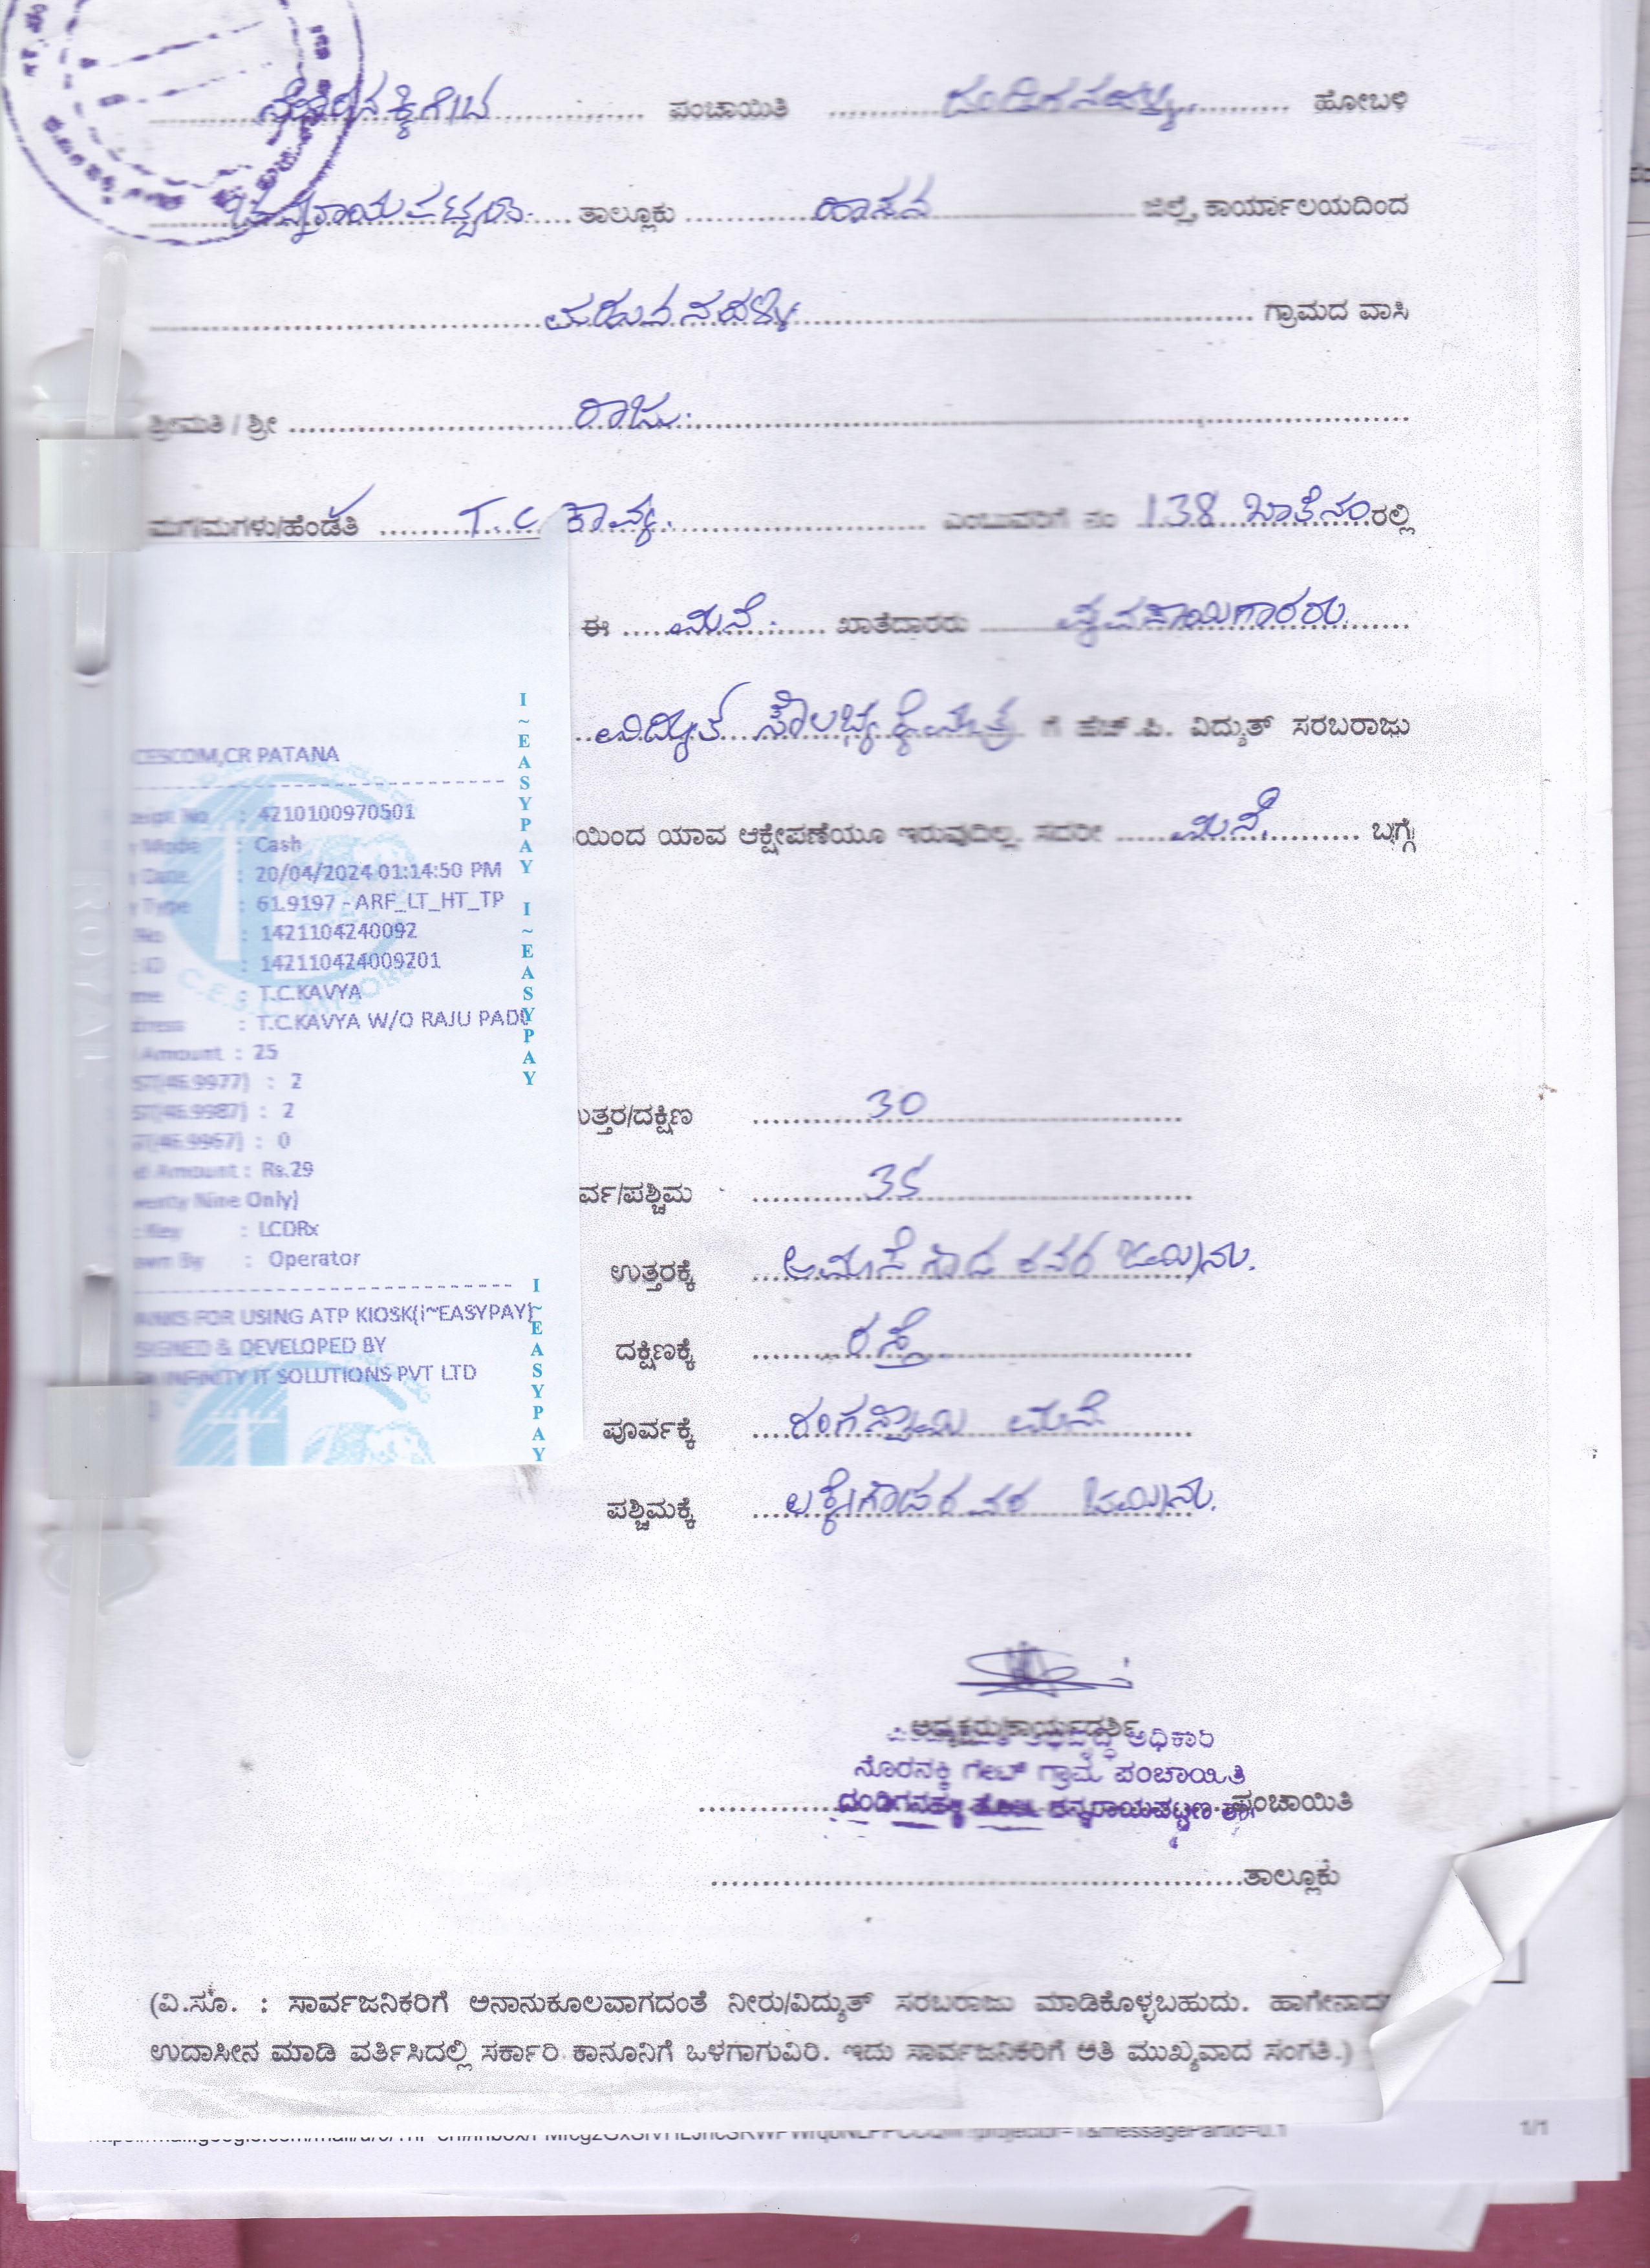 ನೊರನಕ್ಕಿಗೇಟ ಪಂಚಾಯಿತಿ ದಂಡಿಗನಹಳ್ಳಿ ಹೋಬಳಿ
ಚನ್ನರಾಯಪಟ್ಟಣ ತಾಲ್ಲೂಕು ಹಾಸನ ಜಿಲ್ಲೆ, ಕಾರ್ಯಾಲಯದಿಂದ
ಪಡುವನಹಳ್ಳಿ ಗ್ರಾಮದ ವಾಸಿ
ಶ್ರೀಮತಿ / ಶ್ರೀ ರಾಜು
ಮಗ/ಮಗಳು/ಹೆಂಡತಿ T.C ಕಾವ್ಯ. ಎಂಬುವರಿಗೆ ನಂ 138 ಖಾತೆನಂ ರಲ್ಲಿ
ಈ ಮನೆ. ಖಾತೆದಾರರು ವ್ಯವಸಾಯಗಾರರು
ವಿದ್ಯುತ್ ಸೌಲಭ್ಯಕ್ಕೆ ಮಾತ್ರ ಗೆ ಹೆಚ್.ಪಿ. ವಿದ್ಯುತ್ ಸರಬರಾಜು
ಯಿಂದ ಯಾವ ಆಕ್ಷೇಪಣೆಯೂ ಇರುವುದಿಲ್ಲ. ಸದರೀ ಮನೆ. ಬಗ್ಗೆ
CESCOM,CR PATANA
: 4210100970501
Mode : Cash
Date : 20/04/2024 01:14:50 PM
Type : 61.9197 - ARF_LT_HT_TP
No : 1421104240092
ID : 142110424009201
: T.C.KAVYA
: T.C.KAVYA W/O RAJU PADU
Amount : 25
ST(46.9977) : 2
ST(46.9987) : 2
ST(46.9967) : 0
Amount : Rs.29
Nine Only)
Key : LCDRx
By : Operator
FOR USING ATP KIOSK(i~EASYPAY)
& DEVELOPED BY
INFINITY IT SOLUTIONS PVT LTD
I~EASYPAY I~EASYPAY
I~EASYPAY
ಉತ್ತರ/ದಕ್ಷಿಣ 30
ರ್ವ/ಪಶ್ಚಿಮ 35
ಉತ್ತರಕ್ಕೆ ಅಮಾಸೆಗೌಡ ರವರ ಜಮೀನು.
ದಕ್ಷಿಣಕ್ಕೆ ರಸ್ತೆ
ಪೂರ್ವಕ್ಕೆ ರಂಗಸ್ವಾಮಿ ಮನೆ
ಪಶ್ಚಿಮಕ್ಕೆ ಲಕ್ಕೇಗೌಡರವರ ಜಮೀನು.
ಅಧ್ಯಕ್ಷರು/ಕಾರ್ಯದರ್ಶಿ
ಅಭಿವೃದ್ಧಿ ಅಧಿಕಾರಿ
ನೊರನಕ್ಕಿ ಗೇಟ್ ಗ್ರಾಮ ಪಂಚಾಯಿತಿ
ದಂಡಿಗನಹಳ್ಳಿ ಹೋಬಳಿ ಚನ್ನರಾಯಪಟ್ಟಣ ತಾ॥
ಪಂಚಾಯಿತಿ
ತಾಲ್ಲೂಕು
(ವಿ.ಸೂ. : ಸಾರ್ವಜನಿಕರಿಗೆ ಅನಾನುಕೂಲವಾಗದಂತೆ ನೀರು/ವಿದ್ಯುತ್ ಸರಬರಾಜು ಮಾಡಿಕೊಳ್ಳಬಹುದು. ಹಾಗೇನಾದ
ಉದಾಸೀನ ಮಾಡಿ ವರ್ತಿಸಿದಲ್ಲಿ ಸರ್ಕಾರಿ ಕಾನೂನಿಗೆ ಒಳಗಾಗುವಿರಿ. ಇದು ಸಾರ್ವಜನಿಕರಿಗೆ ಅತಿ ಮುಖ್ಯವಾದ ಸಂಗತಿ.)
1/1
ROYAL